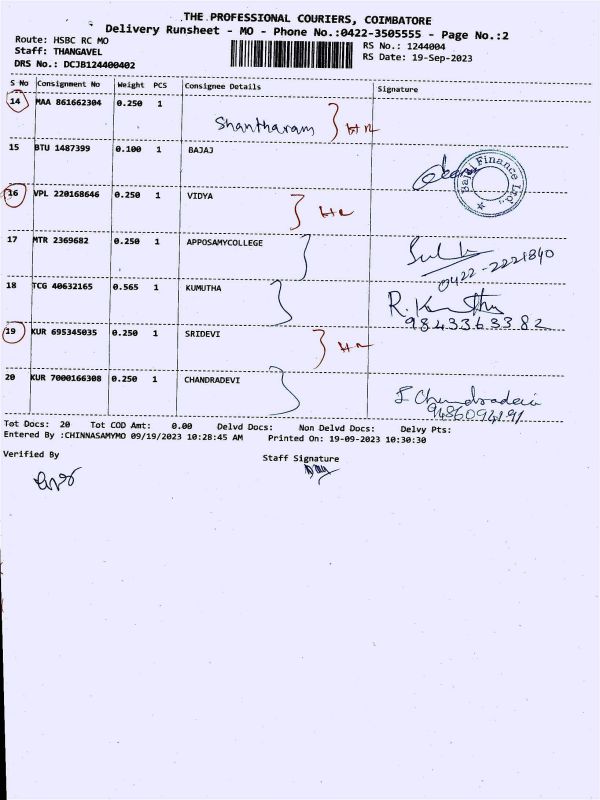 THE PROFESSIONAL COURIERS, COIMBATORE
Delivery Runsheet - MO - Phone No.:0422-3505555 - Page No.:2
Route: HSBC RC MO
RS No.: 1244004
Staff: THANGAVEL
RS Date: 19-Sep-2023
DRS No.: DCJB124400402
S No Consignment No Weight PCS Consignee Details Signature
14 MAA 861662304 0.250 1
Shantharam
15 BTU 1487399 0.100 1 BAJAJ
Bajaj Finance Ltd.
16 VPL 220168646 0.250 1 VIDYA
17 MTR 2369682 0.250 1 APPOSAMYCOLLEGE
0422-2221840
18 TCG 40632165 0.565 1 KUMUTHA
9843363382
19 KUR 695345035 0.250 1 SRIDEVI
20 KUR 7000166308 0.250 1 CHANDRADEVI
Chandradevi
9486094191
Tot Docs: 20 Tot COD Amt: 0.00 Delvd Docs: Non Delvd Docs: Delvy Pts:
Entered By :CHINNASAMYMO 09/19/2023 10:28:45 AM Printed On: 19-09-2023 10:30:30
Verified By
Staff Signature